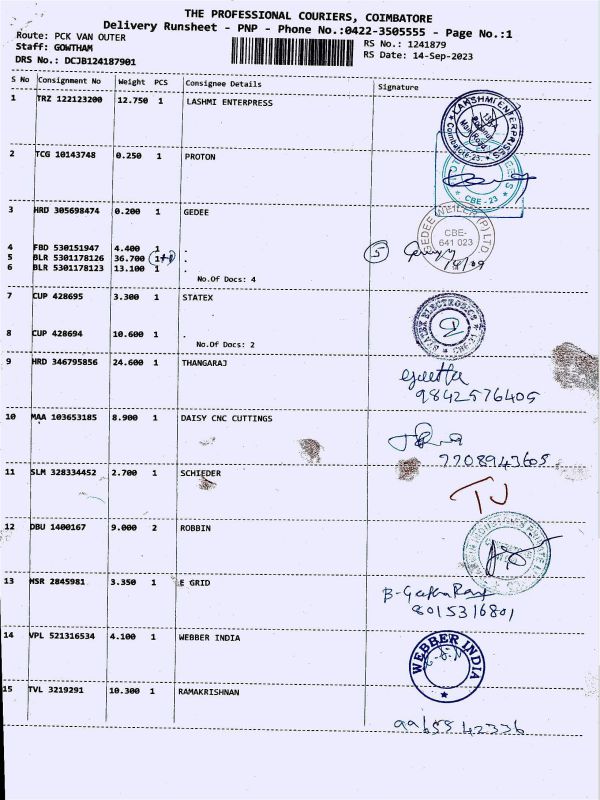 THE PROFESSIONAL COURIERS, COIMBATORE
Delivery Runsheet - PNP - Phone No.:0422-3505555 - Page No.:1
Route: PCK VAN OUTER
Staff: GOWTHAM
DRS No.: DCJB124187901
RS No.: 1241879
RS Date: 14-Sep-2023
S No Consignment No Weight PCS Consignee Details Signature
1 TRZ 122123200 12.750 1 LASHMI ENTERPRESS
LAKSHMI ENTERPRISES
Coimbatore-23.
2 TCG 10143748 0.250 1 PROTON
CBE - 23
3 HRD 305698474 0.200 1 GEDEE
GEDEE WEILER (P) LTD
CBE-
641 023
4 FBD 530151947 4.400 1 .
5 BLR 5301178126 36.700 1+1 .
5
6 BLR 5301178123 13.100 1 .
No.Of Docs: 4
7 CUP 428695 3.300 1 STATEX
STATEX ELECTRONICS
CBE-21
8 CUP 428694 10.600 1 .
No.Of Docs: 2
9 HRD 346795856 24.600 1 THANGARAJ
Geetha
9842576405
10 MAA 103653185 8.900 1 DAISY CNC CUTTINGS
7708943605
11 SLM 328334452 2.700 1 SCHIEDER
TJ
12 DBU 1400167 9.000 2 ROBBIN
13 MSR 2845981 3.350 1 E GRID
8015316801
14 VPL 521316534 4.100 1 WEBBER INDIA
WEBBER INDIA
15 TVL 3219291 10.300 1 RAMAKRISHNAN
9965542336